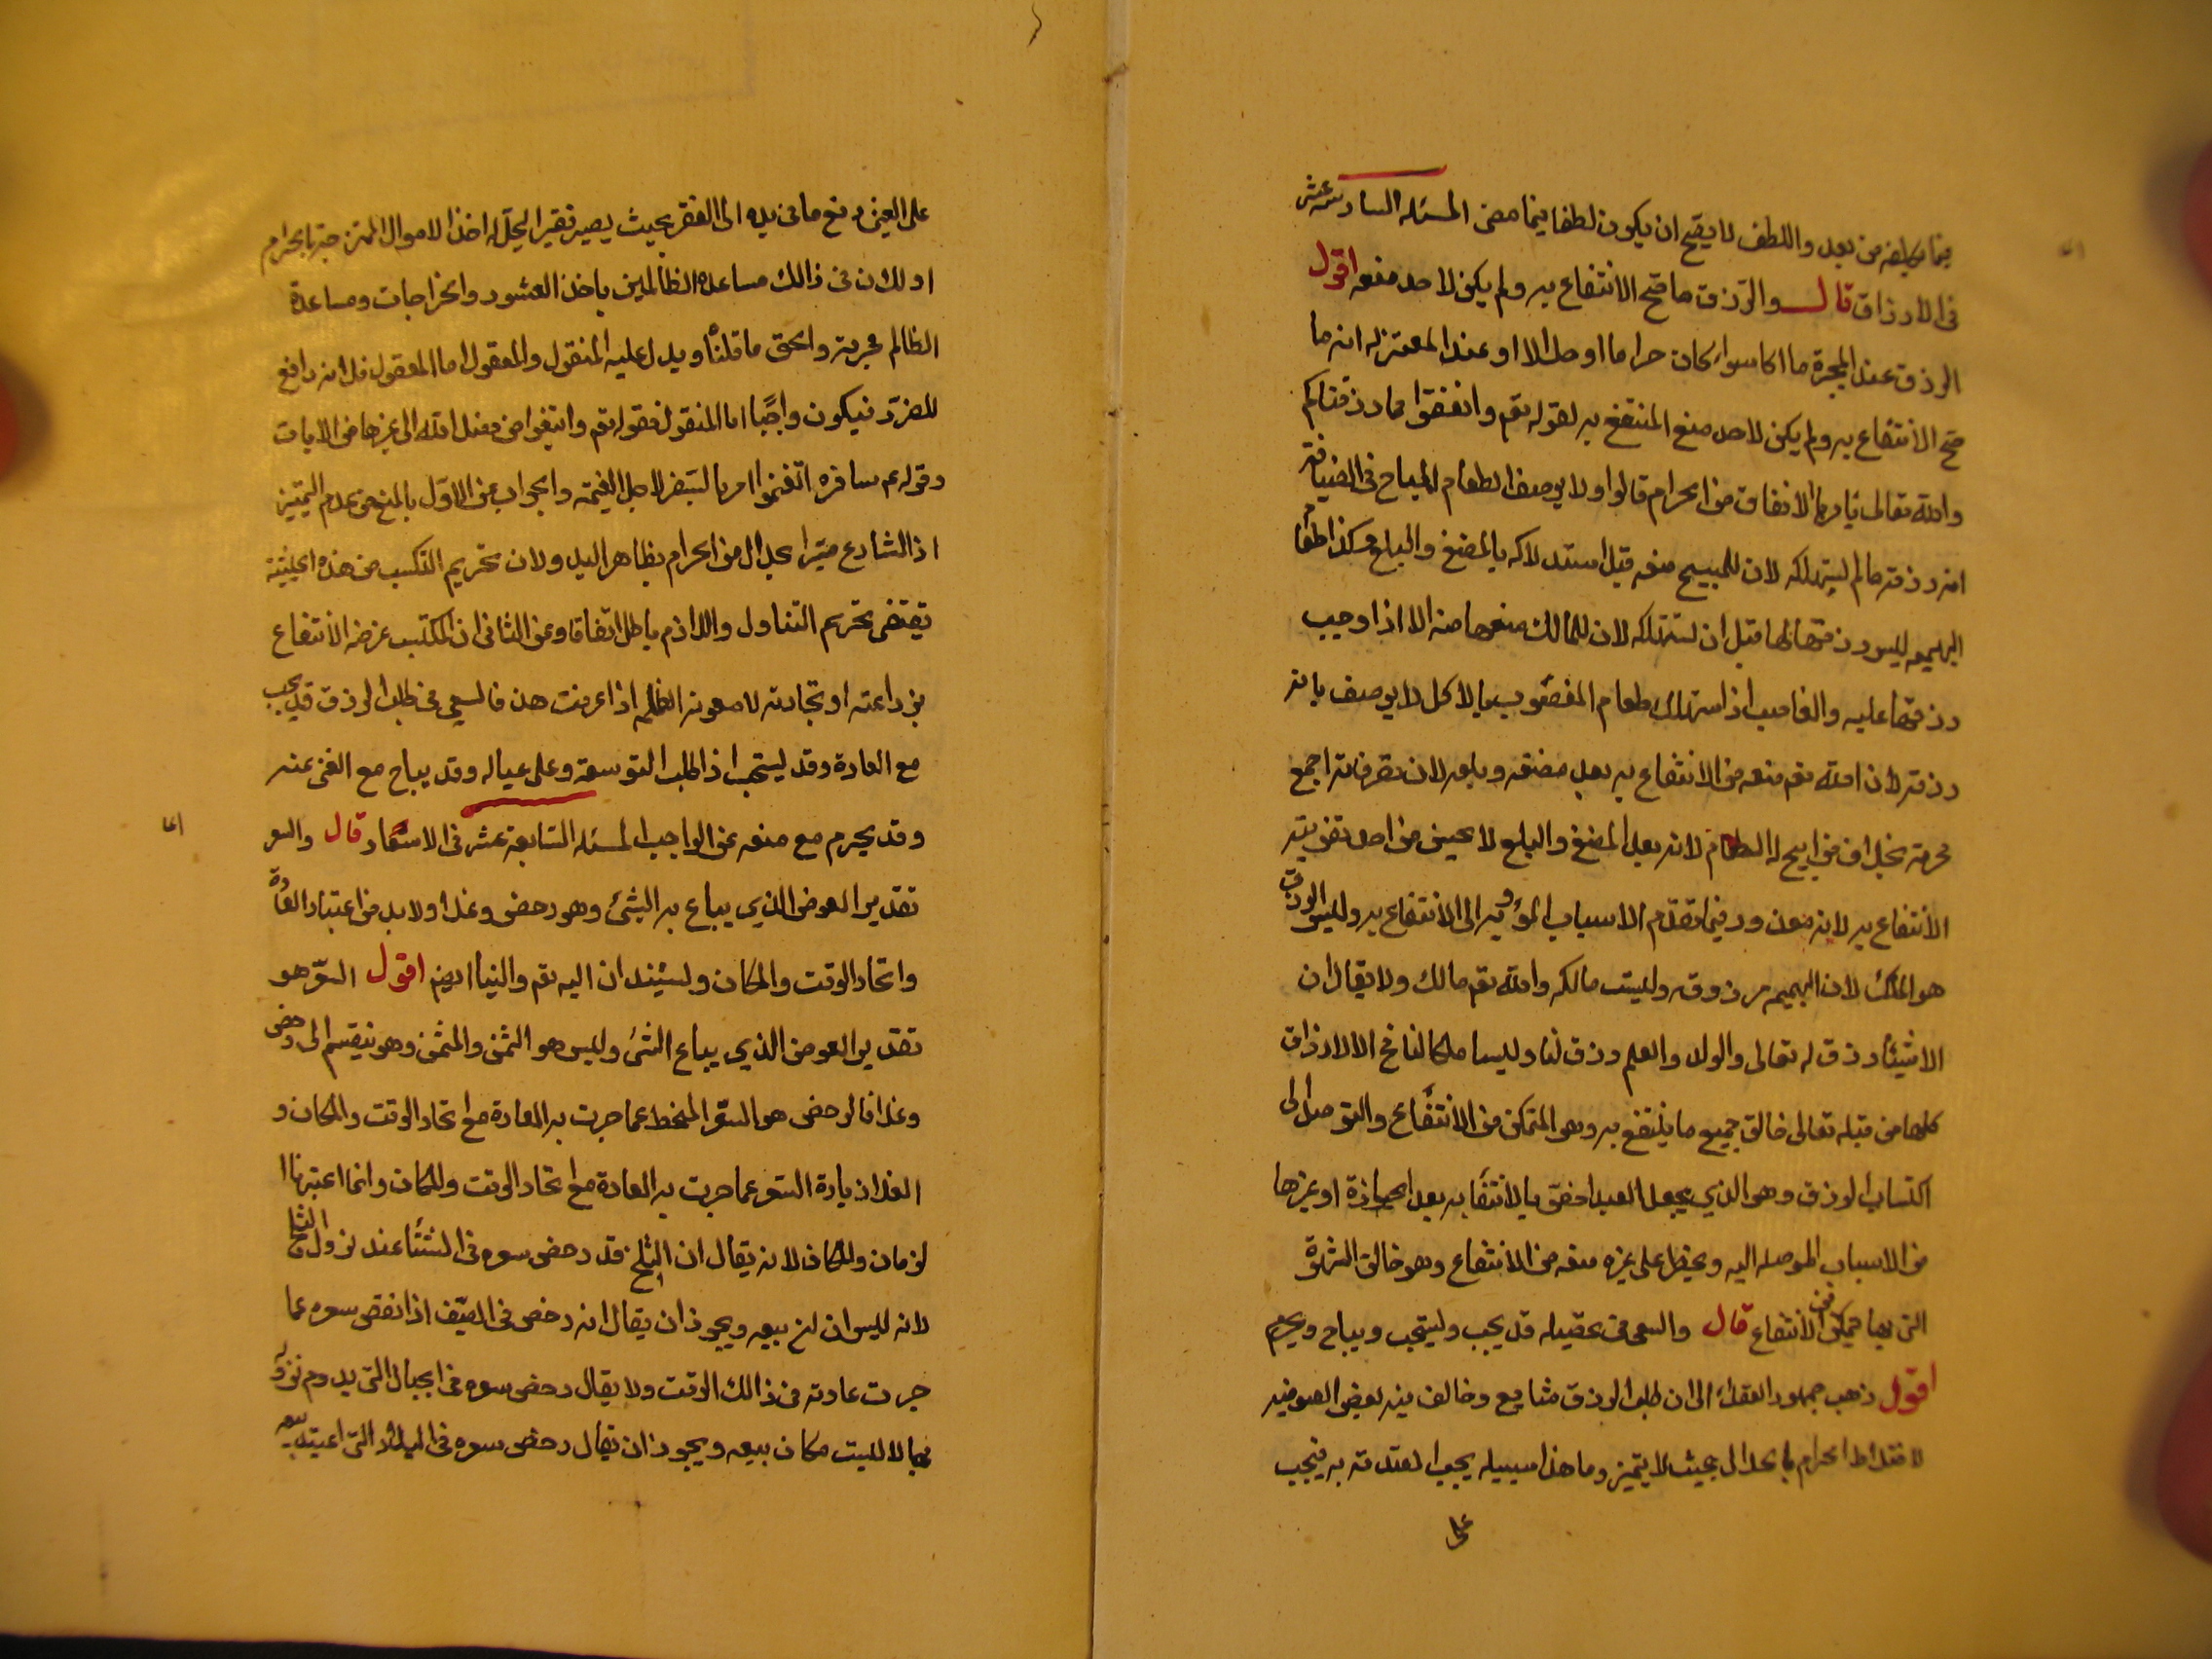 فيما يكلفه من بعد واللطف لا يصح ان يكون لطفا فيما مضى المسئله السادسه عشر
فى الارزاق قال والرزق ما صح الانتفاع به ولم يكن لاحد منعه اقول
الرزق عند المجبرة ما اكل سواء كان حراما او حلالا وعند المعتزله انه ما
صح الانتفاع به ولم يكن لاحد منع المنتفع به لقوله تعم وانفقوا مما رزقناكم
والله تعالى لا يامر بالانفاق من الحرام قالوا ولا يوصف الطعام المباح فى الضيافة
انه رزقه ما لم يستهلكه لان للمبيح منعه قبل استهلاكه بالمضغ والبلع وكذا طعام
البهيمه ليس رزقها لها قبل ان تستهلكه لان للمالك منعها منه الا اذا وجب
رزقها عليه والغاصب اذا استهلك طعام المغصوب بالاكل لا يوصف بانه
رزقه لان الله تعم منعه من الانتفاع به بعد مضغه وبلعه لان تصرفاته اجمع
محرمه بخلاف من ابيح له الطعام لانه بعد المضغ والبلع لا يحسن من احد تفويته
الانتفاع به لانه معدود فيما تقدم الاسباب المؤديه الى الانتفاع به وليس الرزق
هو الملك لان البهيمه مرزوقه وليست مالكه والله تعم مالك ولا يقال ان
الاشياء رزق له تعالى والولد والعلم رزق لنا وليسا ملكا لنا فح الا الارزاق
كلها من قبله تعالى خالق جميع ما ينتفع به وهو الممكن من الانتفاع والتوصل الى
اكتساب الرزق وهو الذي يجعل العبد اخص بالانتفاع به بعد الحيازة او غيرها
من الاسباب الموصله اليه ويحظر على غيره منعه من الانتفاع وهو خالق الشهوة
التى بها يمكن من الانتفاع قال والسعى فى تحصيله قد يجب ويستحب ويباح ويحرم
اقول ذهب جمهور العقلاء الى ان طلب الرزق سائغ وخالف فيه بعض الصوفيه
لاختلاط الحرام بالحلال بحيث لا يتميز وما هذا سبيله يجب الصدقه به فيجب
على
على الغنى دفع ما فى يده الى الفقر بحيث يصير فقيرا ليحل له اخذ الاموال الممتزجة بالحرام
اولان فى ذالك مساعدة الظالمين باخذ العشور والخراجات ومساعدة
الظالم محرمه والحق ما قلناه ويدل عليه المنقول والمعقول اما المعقول فلانه دافع
للضرر فيكون واجبا اما المنقول فقوله تعم وابتغوا من فضل الله الى غيرها من الايات
وقوله عم سافروا تغنموا امر بالسفر لاجل الغنيمه والجواب عن الاول بالمنع من عدم التميز
اذ الشارع ميز الحلال من الحرام بظاهر اليد ولان تحريم التكسب من هذه الحيثية
يقتضى تحريم التناول واللازم باطل اتفاقا وعن الثانى ان المكتسب غرضه الانتفاع
بزراعته او تجارته لا معونه الظلم اذا عرفت هذا فالسعى فى طلب الرزق قد يجب
مع الحاجة وقد يستحب اذا طلب التوسعة وعلى عياله وقد يباح مع الغنى عنه
وقد يحرم مع منعه عن الواجب المسئله السابعة عشر فى الاسعار قال والسعر
تقدير العوض الذي يباع به الشئ وهو رخص وغلا ولا بد من اعتبار العادة
واتحاد الوقت والمكان ويستندان اليه تعم والينا ايضم اقول السعر هو
تقدير العوض الذي يباع الشئ وليس هو الثمن والمثمن وهو ينقسم الى رخص
وغلا فالرخص هو السعر المنحط عما جرت به العادة مع اتحاد الوقت والمكان و
الغلا زيادة السعر عما جرت به العادة مع اتحاد الوقت والمكان وانما اعتبرنا ا
لزمان والمكان لانه يقال ان الثلج قد رخص سعره فى الشتاء عند نزول الثلج
لانه ليس اوان بيعه ويجوز ان يقال انه رخص فى الصيف اذا نقص سعره عما
جرت عادته فى ذالك الوقت ولا يقال رخص سعره فى الجبال التى يدوم نزوله
بها لا ليست مكان بيعه ويجوز ان يقال رخص سعره فى البلاد التى اعتيد بيعه